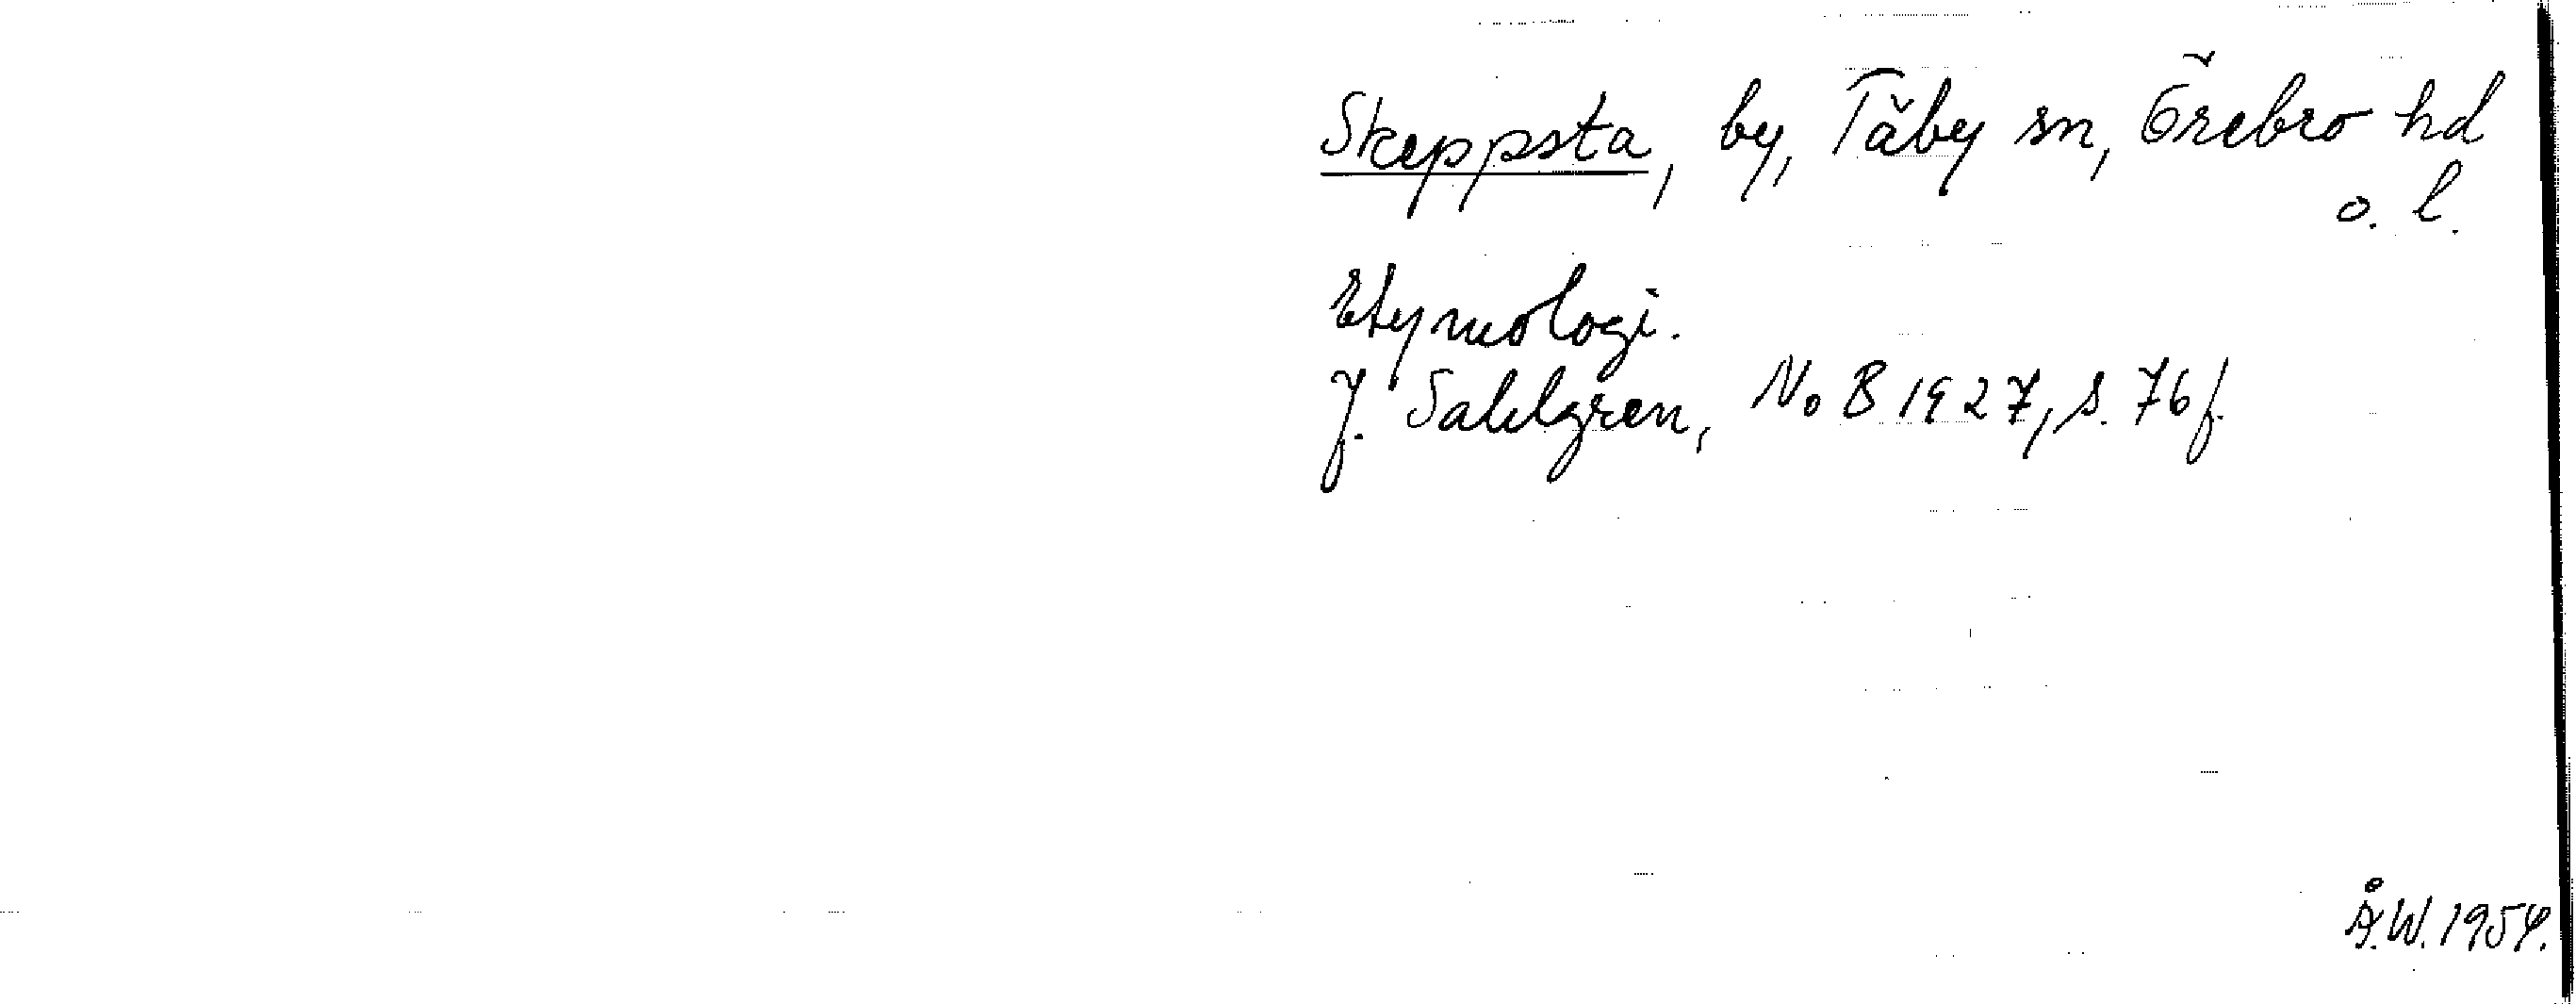 Skeppsta, by, Täby sn, Örebro hd
o. l.
Etymologi.
J. Sahlgren, NoB 1927, s. 76f.
Å.W. 1954.